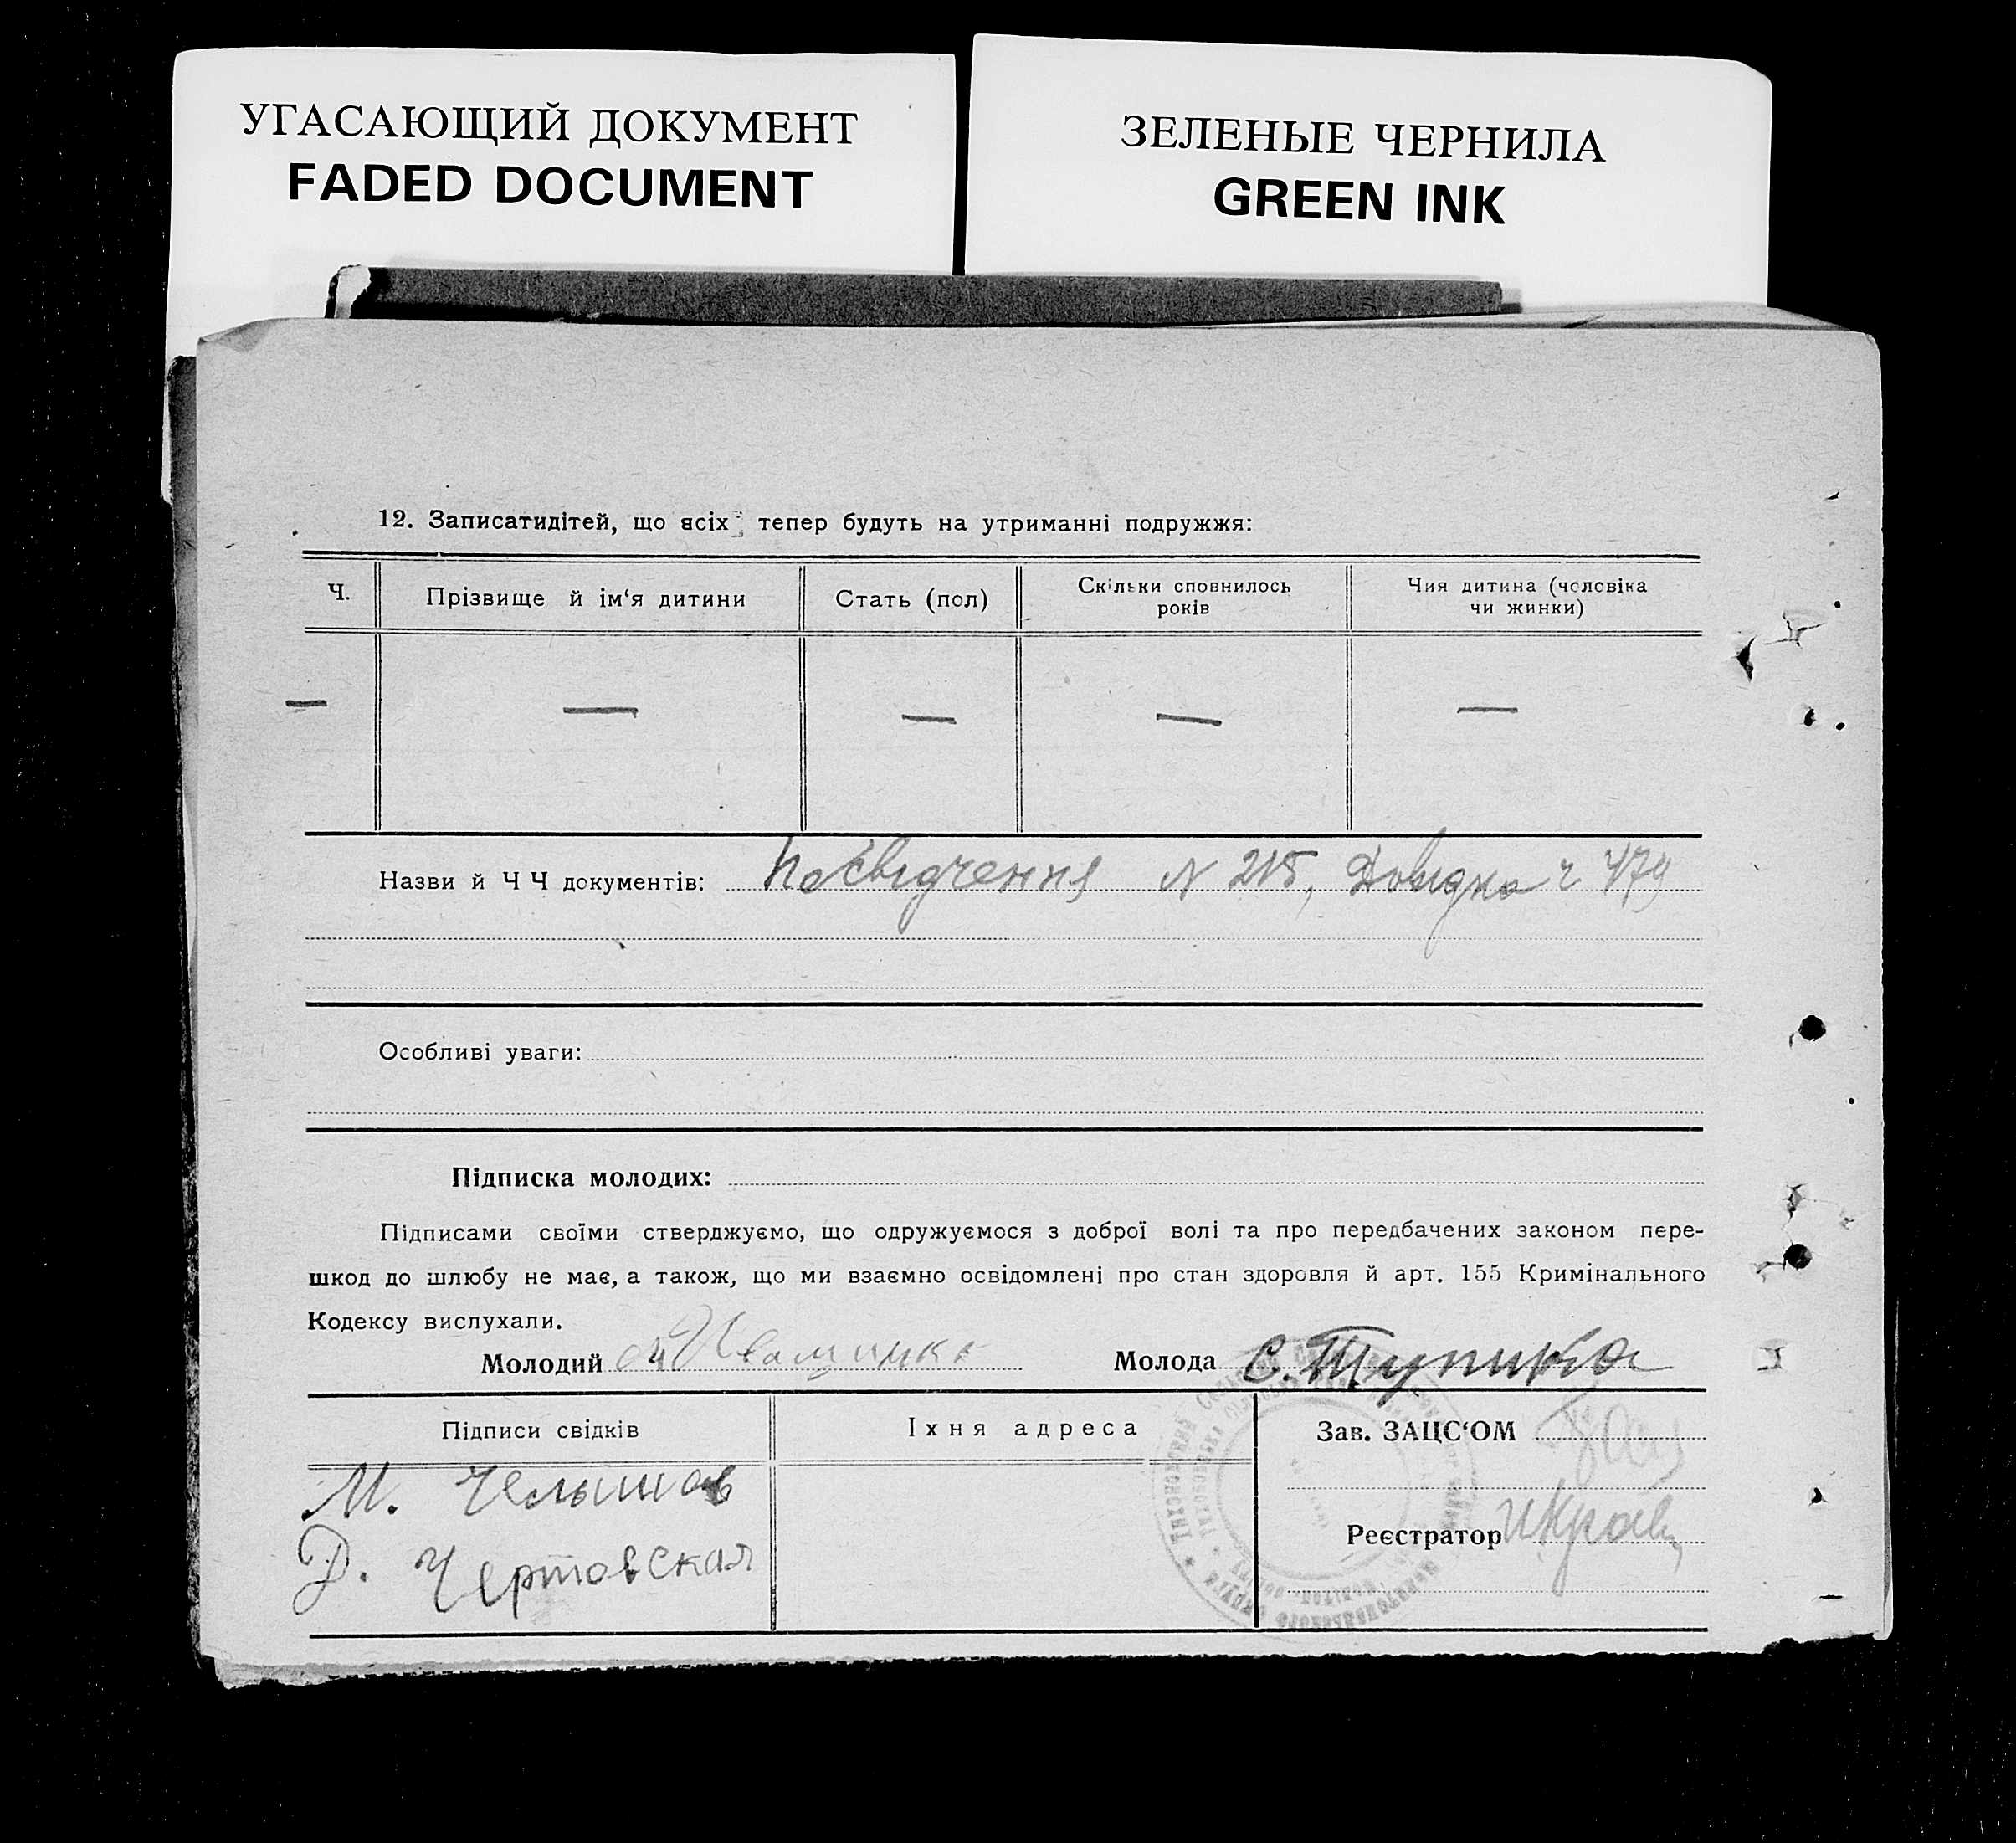 УГАСАЮЩИЙ ДОКУМЕНТ
FADED DOCUMENT
ЗЕЛЕНЫЕ ЧЕРНИЛА
GREEN INK
12. Записатидітей, що всіх тепер будуть на утриманні подружжя:
Ч.
Прізвище й ім‘я дитини
Стать (пол)
Скільки сповнилось
років
Чия дитина (человіка
чи жинки)
— — — — —
Назви й Ч Ч документів: Посвідчення N 215, Довидка ч 479
Особливі уваги:
Підписка молодих:
Підписами своїми стверджуємо, що одружуємося з доброї волі та про передбачених законом пере-
шкод до шлюбу не має, а також, що ми взаємно освідомлені про стан здоровля й арт. 155 Кримінального
Кодексу вислухали.
Молодий
Молода С. Тупика
Підписи свідків
Їхня адреса
Зав. ЗАЦС‘ОМ
М. Челышов
Реєстратор
Д. Чертовская